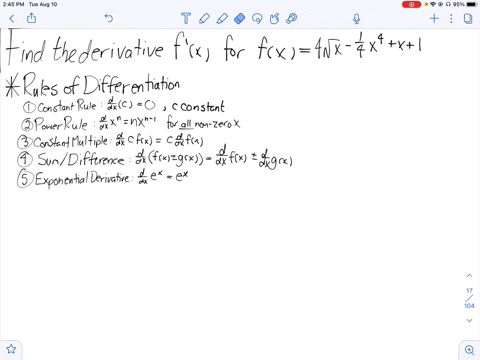 2:45 PM Tue Aug 10
95%
Find the derivative f'(x) for f(x) = 4√x - 1/4 x⁴ + x + 1
* Rules of Differentiation
① Constant Rule: d/dx (c) = 0, c constant
② Power Rule: d/dx xⁿ = nxⁿ⁻¹ for all non-zero x
③ Constant Multiple: d/dx c f(x) = c d/dx f(x)
④ Sum/Difference: d/dx (f(x) ± g(x)) = d/dx f(x) ± d/dx g(x)
⑤ Exponential Derivative: d/dx eˣ = eˣ
17
/
104